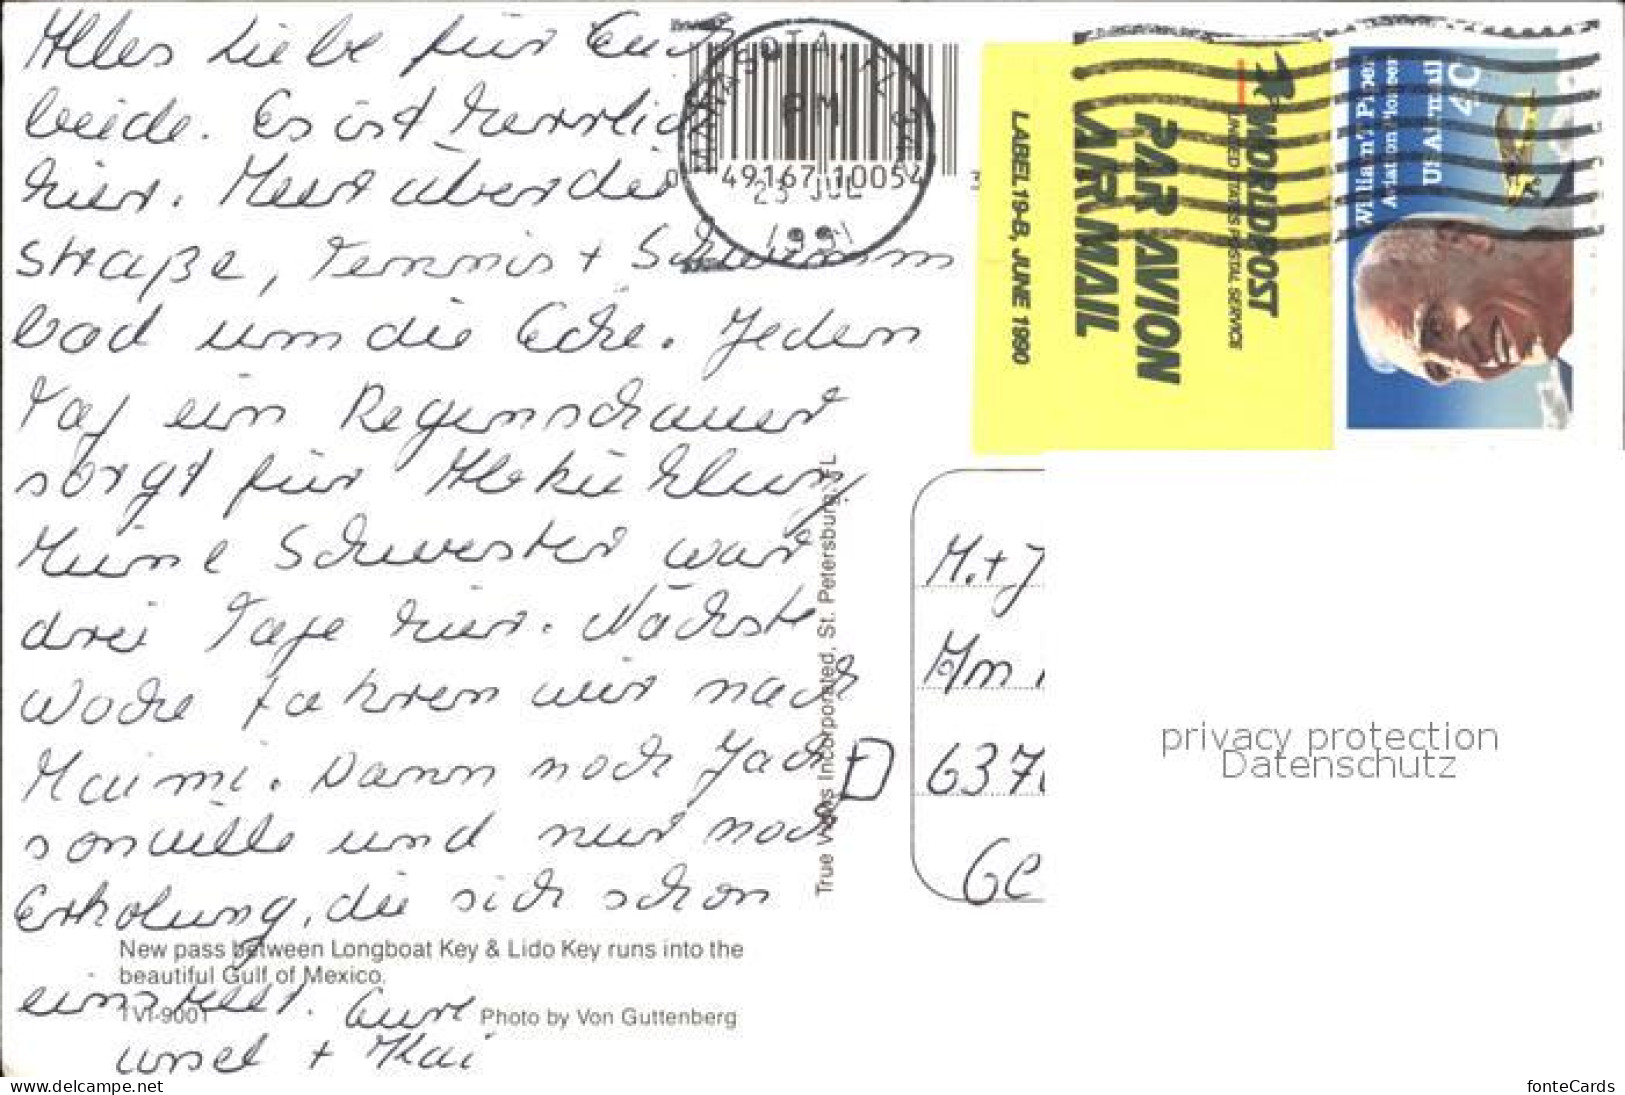 Alles Liebe für Euch
beide. Es ist herrlich
hier. Meer über die
Straße, Tennis + Schwimm
bad um die Ecke. Jeden
Tag ein Regenschauer
sorgt für Abkühlung
Meine Schwester war
drei Tage hier. Nächste
Woche fahren wir nach
Maimi. Dann noch Jack
sonville und nur noch
Erholung, die sich schon
einstellt. Eure
Ursel + Kai
New pass between Longboat Key & Lido Key runs into the
beautiful Gulf of Mexico.
TVI-9001
Photo by Von Guttenberg
True Views Incorporated, St. Petersburg, FL
MANASOTA, FL
PM
23 JUL
1991
0 49167 10054 3
LABEL 19-B, JUNE 1990
PAR AVION
AIRMAIL
WORLDPOST
UNITED STATES POSTAL SERVICE
William T. Piper
Aviation Pioneer
US Airmail
40
M. + J
Am
D 637
Ge
privacy protection
Datenschutz
www.delcampe.net
fonteCards